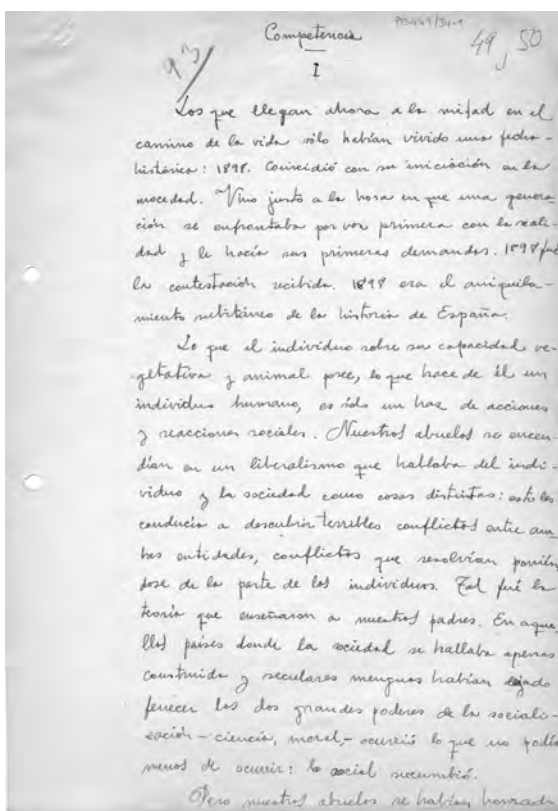 PB-449/34-1
Competencia
49, 50
93/
I
Los que llegan ahora a la mitad en el
camino de la vida sólo habían vivido una fecha
histórica: 1898. Coincidió con su iniciación en la
mocedad. Vino justo a la hora en que una genera
ción se enfrontaba por vez primera con la reali-
dad y le hacía sus primeras demandas. 1898 fué
la contestación recibida. 1898 era el aniquila-
miento subitáneo de la historia de España.
Lo que el individuo sobre su capacidad ve-
getativa y animal posee, lo que hace de él un
individuo humano, es sólo un haz de acciones
y reacciones sociales. Nuestros abuelos se encen-
dían en un liberalismo que hablaba del indi-
viduo y la sociedad como cosas distintas: esto les
conducía a descubrir terribles conflictos entre am
bas entidades, conflictos que resolvían ponién
dose de la parte de los individuos. Tal fué la
teoría que enseñaron a nuestros padres. En aque
llos países donde la sociedad se hallaba apenas
construida y seculares menguas habían dejado
fenecer los dos grandes poderes de la sociali-
zación - ciencia, moral, - ocurrió lo que no podía
menos de ocurrir: lo social sucumbió.
Pero nuestros abuelos se habían honrado